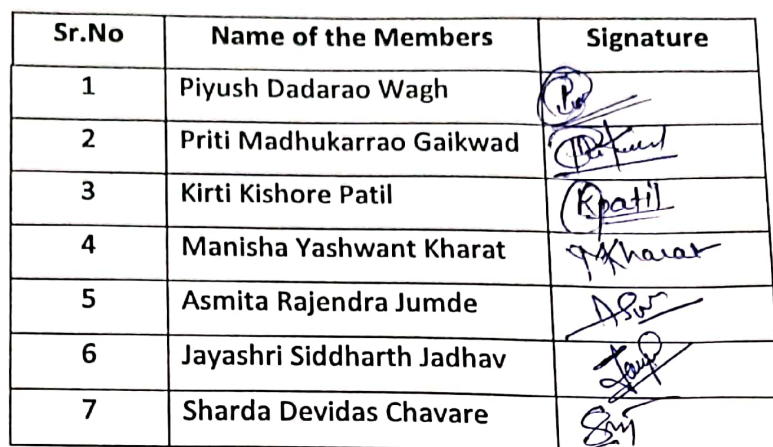 Sr.No Name of the Members Signature
1 Piyush Dadarao Wagh
2 Priti Madhukarrao Gaikwad
3 Kirti Kishore Patil Kpatil
4 Manisha Yashwant Kharat MKharat
5 Asmita Rajendra Jumde
6 Jayashri Siddharth Jadhav
7 Sharda Devidas Chavare